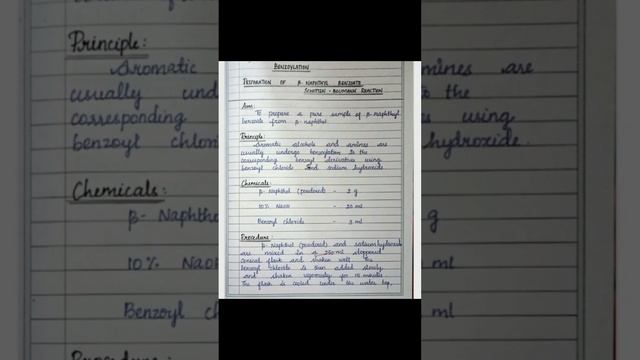 BENZOYLATION
PREPARATION OF β-NAPHTHYL BENZOATE
SCHOTTEN-BOUMANN REACTION
Aim:
To prepare a pure sample of β-naphthyl
benzoate from β-naphthol
Principle:
Aromatic alcohols and amines are
usually undergo benzoylation to the
corresponding benzoyl derivatives using
benzoyl chloride and sodium hydroxide
Chemicals:
β-Naphthol (powdered) - 2 g
10% NaOH - 20 ml
Benzoyl chloride - 3 ml
Procedure:
β-Naphthol (powdered) and sodium hydroxide
are mixed in a 250 ml stoppered
conical flask and shaken well. The
benzoyl chloride is then added slowly
and shaken vigorously for 10 minutes
The flask is cooled under the water tap,
Principle:
Aromatic
usually und
corresponding
benzoyl chlori
Chemicals:
β- Naphthol
10% NaOH
Benzoyl c
Procedure:
amines are
the
using
hydroxide.
g
ml
ml